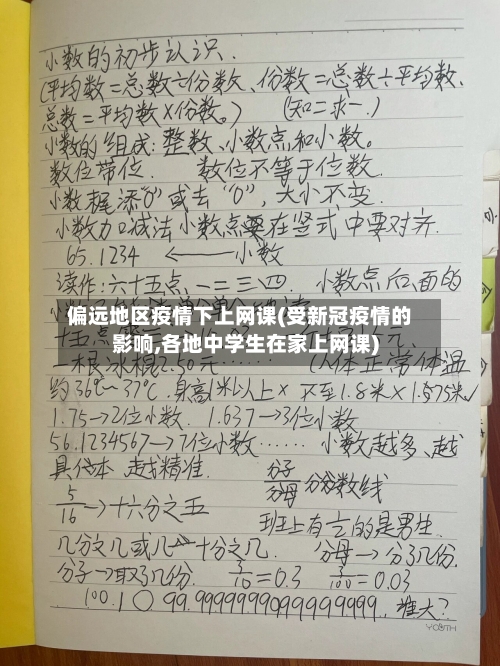 小数的初步认识.
(平均数=总数÷份数、份数=总数÷平均数、
总数=平均数×份数。) (知二求一.)
小数的组成:整数、小数点和小数。
数位带位. 数位不等于位数.
小数尾添"0"或去"0",大小不变.
小数加减法小数点要在竖式中要对齐.
65.1234 ← 小数
读作:六十五点一二三四. 小数点后面的
偏远地区疫情下上网课(受新冠疫情的
影响,各地中学生在家上网课)
一根冰棍2.50元…… (人体正常体温
约36℃~37℃.身高1米以上× 不至1.8米×1.575米√
1.75→2位小数. 1.637→3位小数
56.1234567→7位小数…… 小数越多、越
具体 越精准. 分子 分母 分数线
5/16→十六分之五
班上有 的是男生.
几分之几或几 十分之几. 分母→分了几份.
分子→取了几份. 3/10=0.3 3/100=0.03
100.1 ○ 99.9999999099999999999.. 谁大?
YOUTH